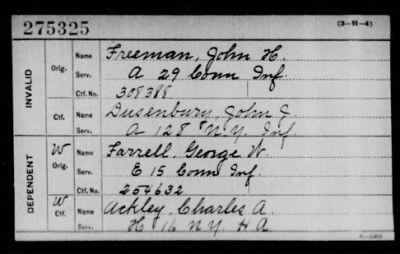 275325
(3-H-4)
INVALID
Orig.
Name Freeman, John H.
Serv. A 29 Conn Inf.
Ctf. No. 308388
Ctf.
Name Dusenbury, John J.
Serv. A 128 N.Y. Inf.
DEPENDENT
W
Orig.
Name Farrell, George W.
Serv. E 15 Conn Inf.
Ctf. No. 254632
W
Ctf.
Name Ackley, Charles A.
Serv. H 16 N.Y. H A.